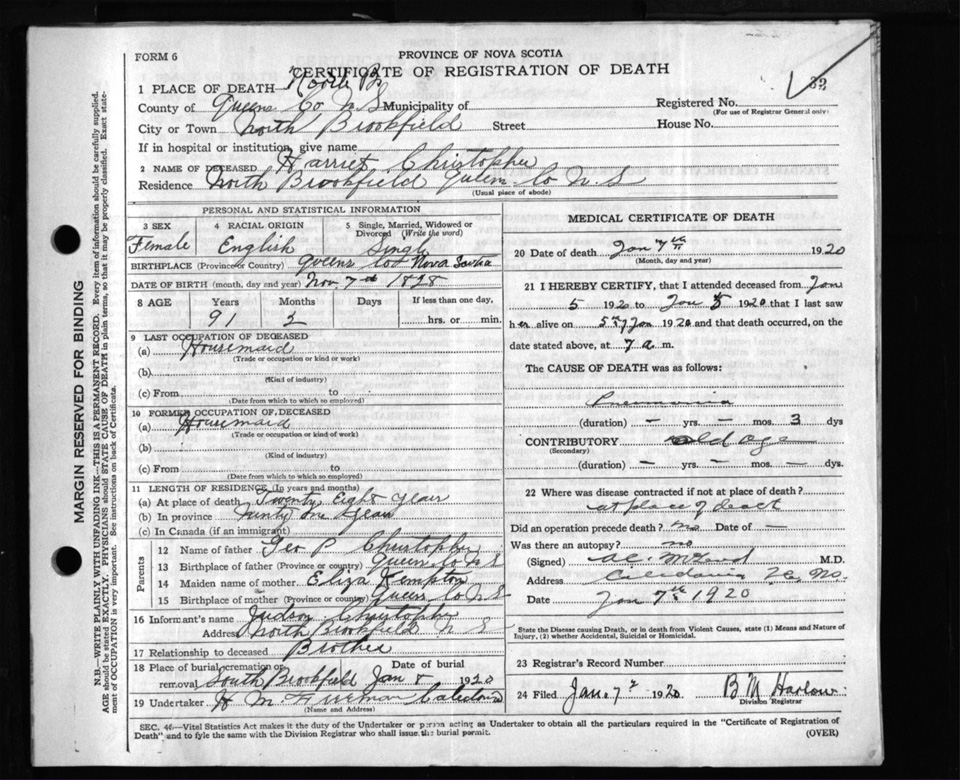 FORM 6
PROVINCE OF NOVA SCOTIA
CERTIFICATE OF REGISTRATION OF DEATH
1 PLACE OF DEATH— North Br
32
County of Queens Co N S Municipality of
Registered No.
(For use of Registrar General only)
City or Town North Brookfield Street House No.
If in hospital or institution, give name
2 NAME OF DECEASED Harriet Christopher
Residence North Brookfield Queens Co N S
(Usual place of abode)
PERSONAL AND STATISTICAL INFORMATION
3 SEX 4 RACIAL ORIGIN 5 Single, Married, Widowed or Divorced (Write the word)
Female English Single
BIRTHPLACE (Province or Country) Queens Co Nova Scotia
DATE OF BIRTH (month, day and year) Nov 7th 1828
8 AGE Years Months Days If less than one day,
91 2 hrs. or min.
9 LAST OCCUPATION OF DECEASED
(a) Housemaid
(Trade or occupation or kind or work)
(b)
(Kind of industry)
(c) From to
(Date from which to which so employed)
10 FORMER OCCUPATION OF DECEASED
(a) Housemaid
(Trade or occupation or kind of work)
(b)
(Kind of industry)
(c) From to
(Date from which to which so employed)
11 LENGTH OF RESIDENCE (In years and months)
(a) At place of death Twenty Eight years
(b) In province Ninty one years
(c) In Canada (if an immigrant)
Parents
12 Name of father Geo P Christopher
13 Birthplace of father (Province or country) Queens Co N S
14 Maiden name of mother Eliza Kempton
15 Birthplace of mother (Province or country) Queens Co N S
16 Informant's name Judson Christopher
Address North Brookfield N S
17 Relationship to deceased Brother
18 Place of burial, cremation or removal South Brookfield Date of burial Jan 8 1920
19 Undertaker H M Freeman Caledonia
(Name and Address)
MEDICAL CERTIFICATE OF DEATH
20 Date of death Jan 7th 1920
(Month, day and year)
21 I HEREBY CERTIFY, that I attended deceased from Jan
5 1920 to Jan 5 1920 that I last saw
her alive on 5th Jan 1920 and that death occurred, on the
date stated above, at 7 a m.
The CAUSE OF DEATH was as follows:
Pneumonia
(duration) — yrs. — mos. 3 dys
CONTRIBUTORY old age
(Secondary)
(duration) — yrs. — mos. — dys.
22 Where was disease contracted if not at place of death?
at place of death
Did an operation precede death? no Date of —
Was there an autopsy? no
(Signed) M.D.
Address Caledonia
Date Jan 7th 1920
State the Disease causing Death, or in death from Violent Causes, state (1) Means and Nature of
Injury, (2) whether Accidental, Suicidal or Homicidal.
23 Registrar's Record Number
24 Filed Jan. 7 1920 B M Harlow
Division Registrar
SEC. 46—Vital Statistics Act makes it the duty of the Undertaker or person acting as Undertaker to obtain all the particulars required in the "Certificate of Registration of
Death" and to fyle the same with the Division Registrar who shall issue the burial permit.
(OVER)
MARGIN RESERVED FOR BINDING
N.B.—WRITE PLAINLY WITH UNFADING INK—THIS IS A PERMANENT RECORD. Every item of information should be carefully supplied.
AGE should be stated EXACTLY. PHYSICIANS should STATE CAUSE OF DEATH in plain terms, so that it may be properly classified. Exact statement
of OCCUPATION is very important. See instructions on back of Certificate.